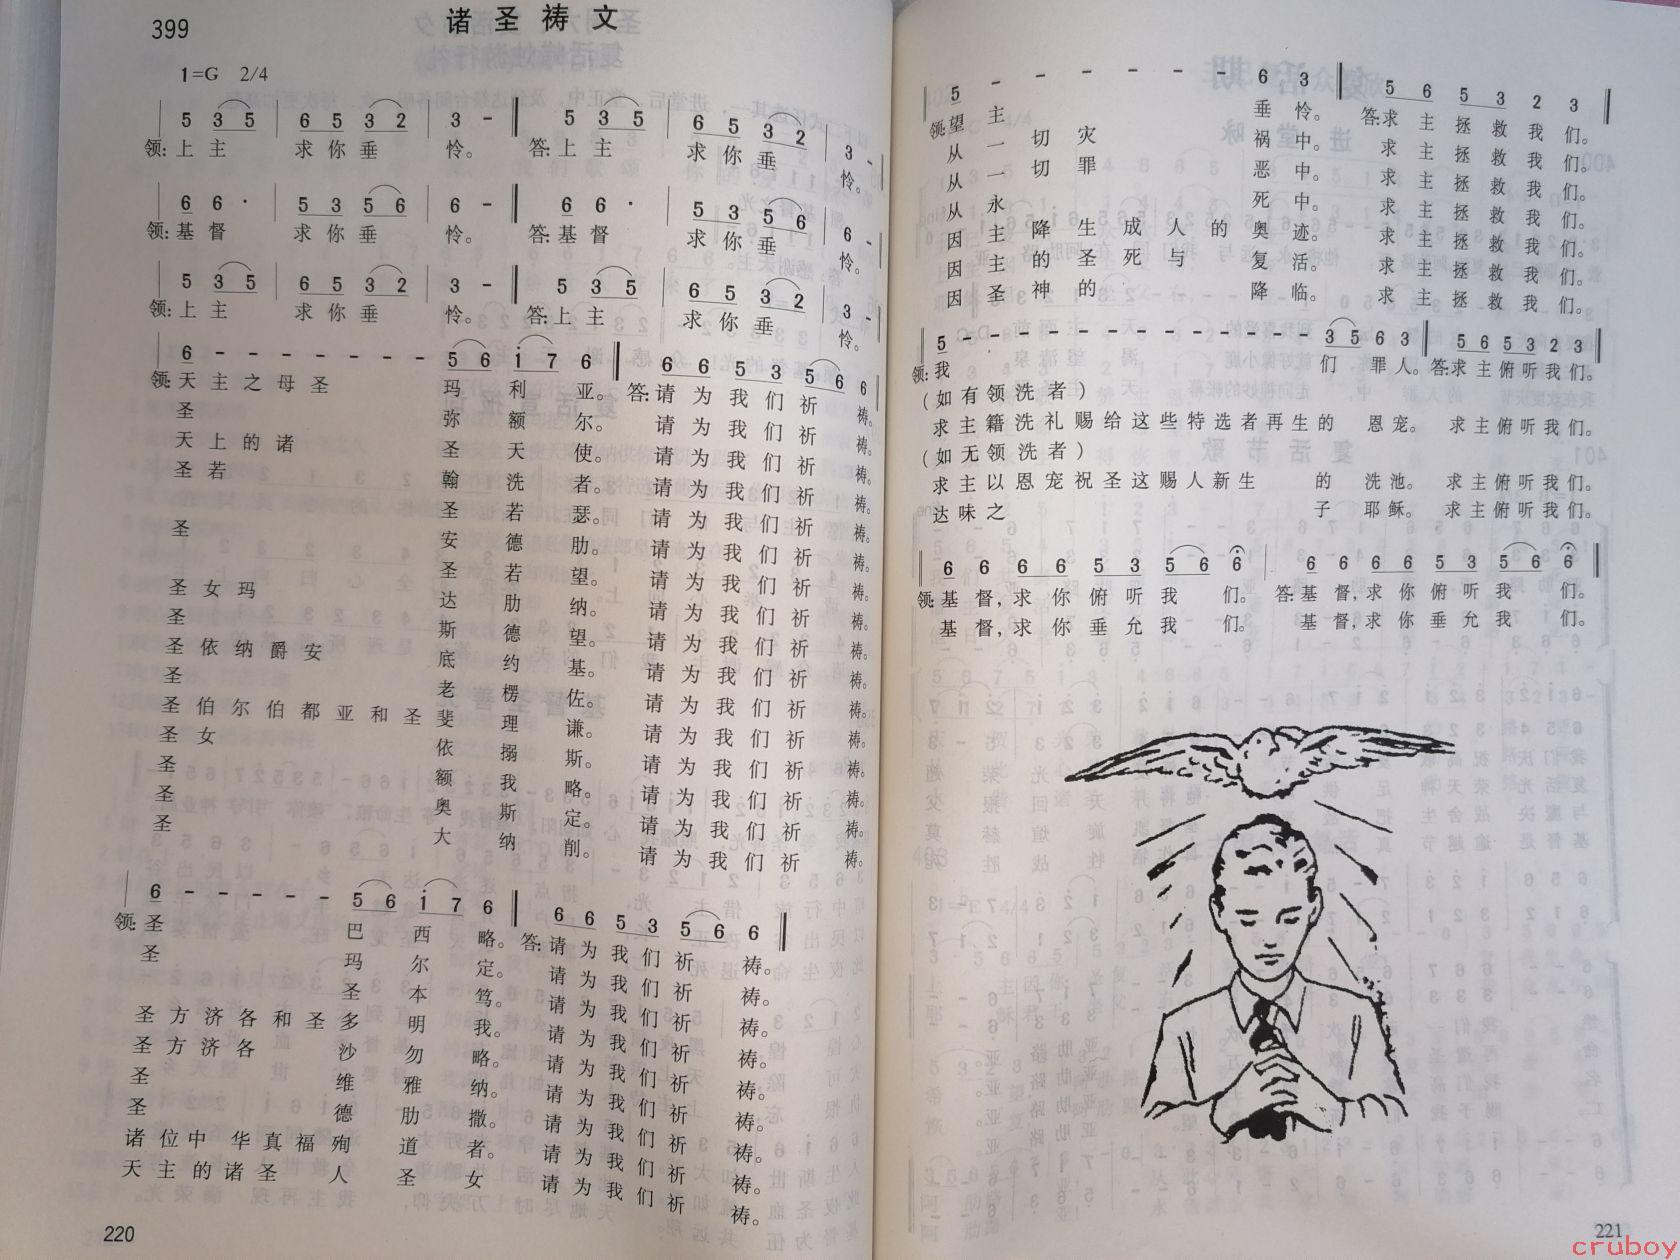 399
诸圣祷文
1=G 2/4
5 3 5 | 6 5 3 2 | 3 - ‖ 5 3 5 | 6 5 3 2 | 3 - |
领:上主 求你垂 怜。 答:上主 求你垂 怜。
6 6 · | 5 3 5 6 | 6 - ‖ 6 6 · | 5 3 5 6 | 6 - |
领:基督 求你垂 怜。 答:基督 求你垂 怜。
5 3 5 | 6 5 3 2 | 3 - ‖ 5 3 5 | 6 5 3 2 | 3 - |
领:上主 求你垂 怜。 答:上主 求你垂 怜。
6 - - - - - - - 5 6 i 7 6 ‖ 6 6 5 3 5 6 6
领:天主之母圣 玛 利 亚。 答:请为我们祈 祷。
圣 弥 额 尔。 请为我们祈 祷。
天上的诸 圣 天 使。 请为我们祈 祷。
圣若 翰 洗 者。 请为我们祈 祷。
圣 若 瑟。 请为我们祈 祷。
圣 安 德 肋。 请为我们祈 祷。
圣 若 望。 请为我们祈 祷。
圣女玛 达 肋 纳。 请为我们祈 祷。
圣 斯 德 望。 请为我们祈 祷。
圣依纳爵安 底 约 基。 请为我们祈 祷。
圣 老 楞 佐。 请为我们祈 祷。
圣伯尔伯都亚和圣 斐 理 谦。 请为我们祈 祷。
圣女 依 搦 斯。 请为我们祈 祷。
圣 额 我 略。 请为我们祈 祷。
圣 奥 斯 定。 请为我们祈 祷。
圣 大 纳 削。 请为我们祈 祷。
6 - - - - - 5 6 i 7 6 ‖ 6 6 5 3 5 6 6 ‖
领:圣 巴 西 略。 答:请为我们祈 祷。
圣 玛 尔 定。 请为我们祈 祷。
圣 本 笃。 请为我们祈 祷。
圣方济各和圣 多 明 我。 请为我们祈 祷。
圣方济各 沙 勿 略。 请为我们祈 祷。
圣 维 雅 纳。 请为我们祈 祷。
圣 德 肋 撒。 请为我们祈 祷。
诸位中华真福 殉 道 者。 请为我们祈 祷。
天主的诸圣 人 圣 女 请为我们祈 祷。
220
5 - - - - - - 6 3 | 5 6 5 3 2 3 ‖
领:望主 垂怜。 答:求主拯救我们。
从一切灾 祸中。 求主拯救我们。
从一切罪 恶中。 求主拯救我们。
从永 死中。 求主拯救我们。
因主降生成人的 奥迹。 求主拯救我们。
因主的圣死与 复活。 求主拯救我们。
因圣神的 降临。 求主拯救我们。
5 - - - - - - - - - - 3 5 6 3 | 5 6 5 3 2 3 ‖
领:我 们 罪人。 答:求主俯听我们。
(如有领洗者)
求主籍洗礼赐给这些特选者再生的 恩宠。 求主俯听我们。
(如无领洗者)
求主以恩宠祝圣这赐人新生 的 洗池。 求主俯听我们。
达味之 子 耶稣。 求主俯听我们。
6 6 6 6 5 3 5 6 6 | 6 6 6 6 5 3 5 6 6 ‖
领:基督,求你俯听我 们。 答:基督,求你俯听我 们。
基督,求你垂允我 们。 基督,求你垂允我 们。
221
cruboy